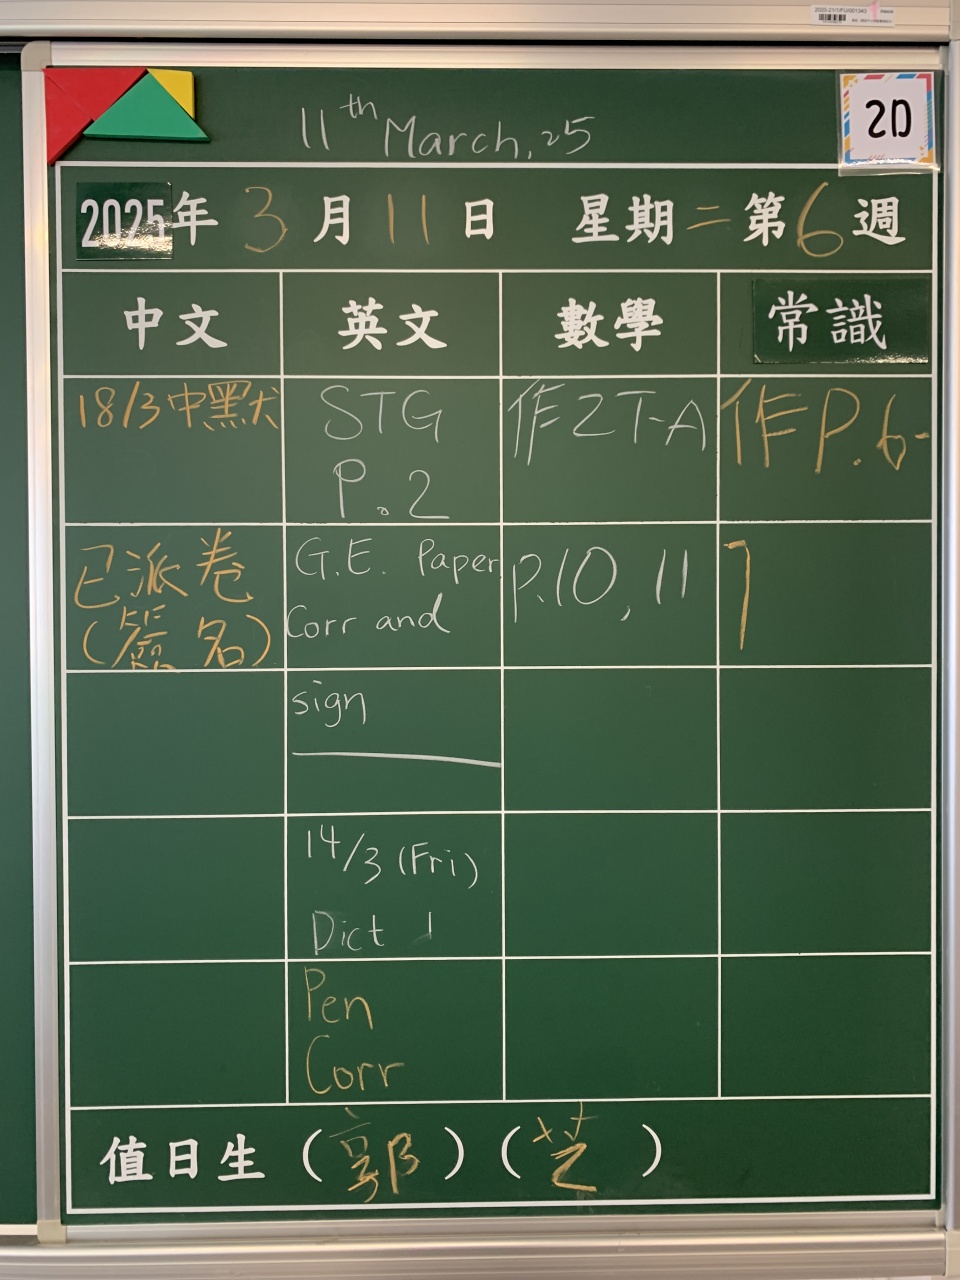 2020-21/1/FU/001343
11th March, 25
2D
2025年 3 月 11 日 星期二 第 6 週
中文 英文 數學 常識
18/3 中默
STG
P.2
作2T-A
作P.6-
已派卷
(簽名)
G.E. Paper
Corr and
P.10, 11
7
sign
14/3 (Fri)
Dict 1
Pen
Corr
值日生 (郭) (芝)